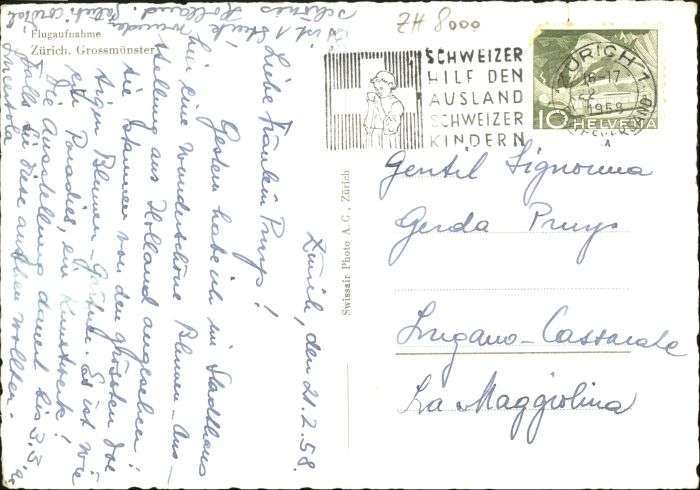 ZH 8000
Flugaufnahme
Zürich, Grossmünster
SCHWEIZER
HILF DEN
AUSLAND
SCHWEIZER
KINDERN
ZÜRICH 1
16-17
1958
10 HELVETIA
Swissair Photo A. G., Zürich
Gentil Signorina
Gerda Pruys
Lugano-Cassarate
La Maggiolina
Zürich, den 21.2.58.
Liebe Fräulein Pruys!
Gestern habe ich im Stadthaus
hier eine wunderschöne Blumen-Aus-
stellung aus Holland angesehen!
Sie stammen von den grössten
artigen Blumen-Gärtner. Es ist wie
ein Paradies, ein Kunstwerk!
Die Ausstellung dauert bis 3.3.
falls Sie diese ansehen wollten.
Es ist 1 Stück wunder
schönes Holland. Saluti cordiali